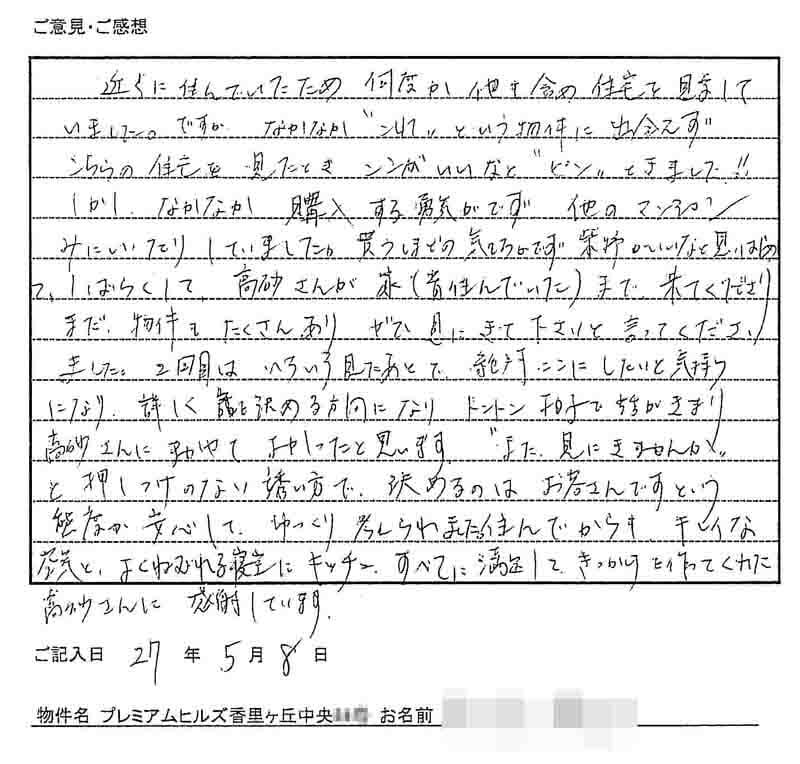 ご意見・ご感想
近くに住んでいたため 何度か 他も含め 住宅を 見学して
いました。ですが なかなか "これ" という物件に 出会えず
こちらの 住宅を 見たとき ここがいいなと "ピン" ときました!!
しかし、なかなか 購入する勇気がでず 他の マンション
みにいったりしていましたが 買うほどの 気もちがでず いいなと思いはじめ
て、しばらくして、高砂さんが 家(昔住んでいた)まで、来てくださり
まだ、物件も たくさんあり ぜひ 見に きて下さいと 言ってくださり
ました。2回目は いろいろ見たあとで、絶対 ここに したいと 気持ち
になり、詳しく 話を決める方向になり トントン拍子で 話がきまり
高砂さんに よかったと思います "また、見にきませんか"
と 押しつけのない 誘い方で、決めるのは お客さんですという
態度が 安心して、ゆっくり 考えられました 住んでからも キレイな
空気と、よくねむれる寝室に キッチン、すべてに 満足して、きっかけを作ってくれた
高砂さんに 感謝しています。
ご記入日 27 年 5 月 8 日
物件名 プレミアムヒルズ香里ヶ丘中央 お名前